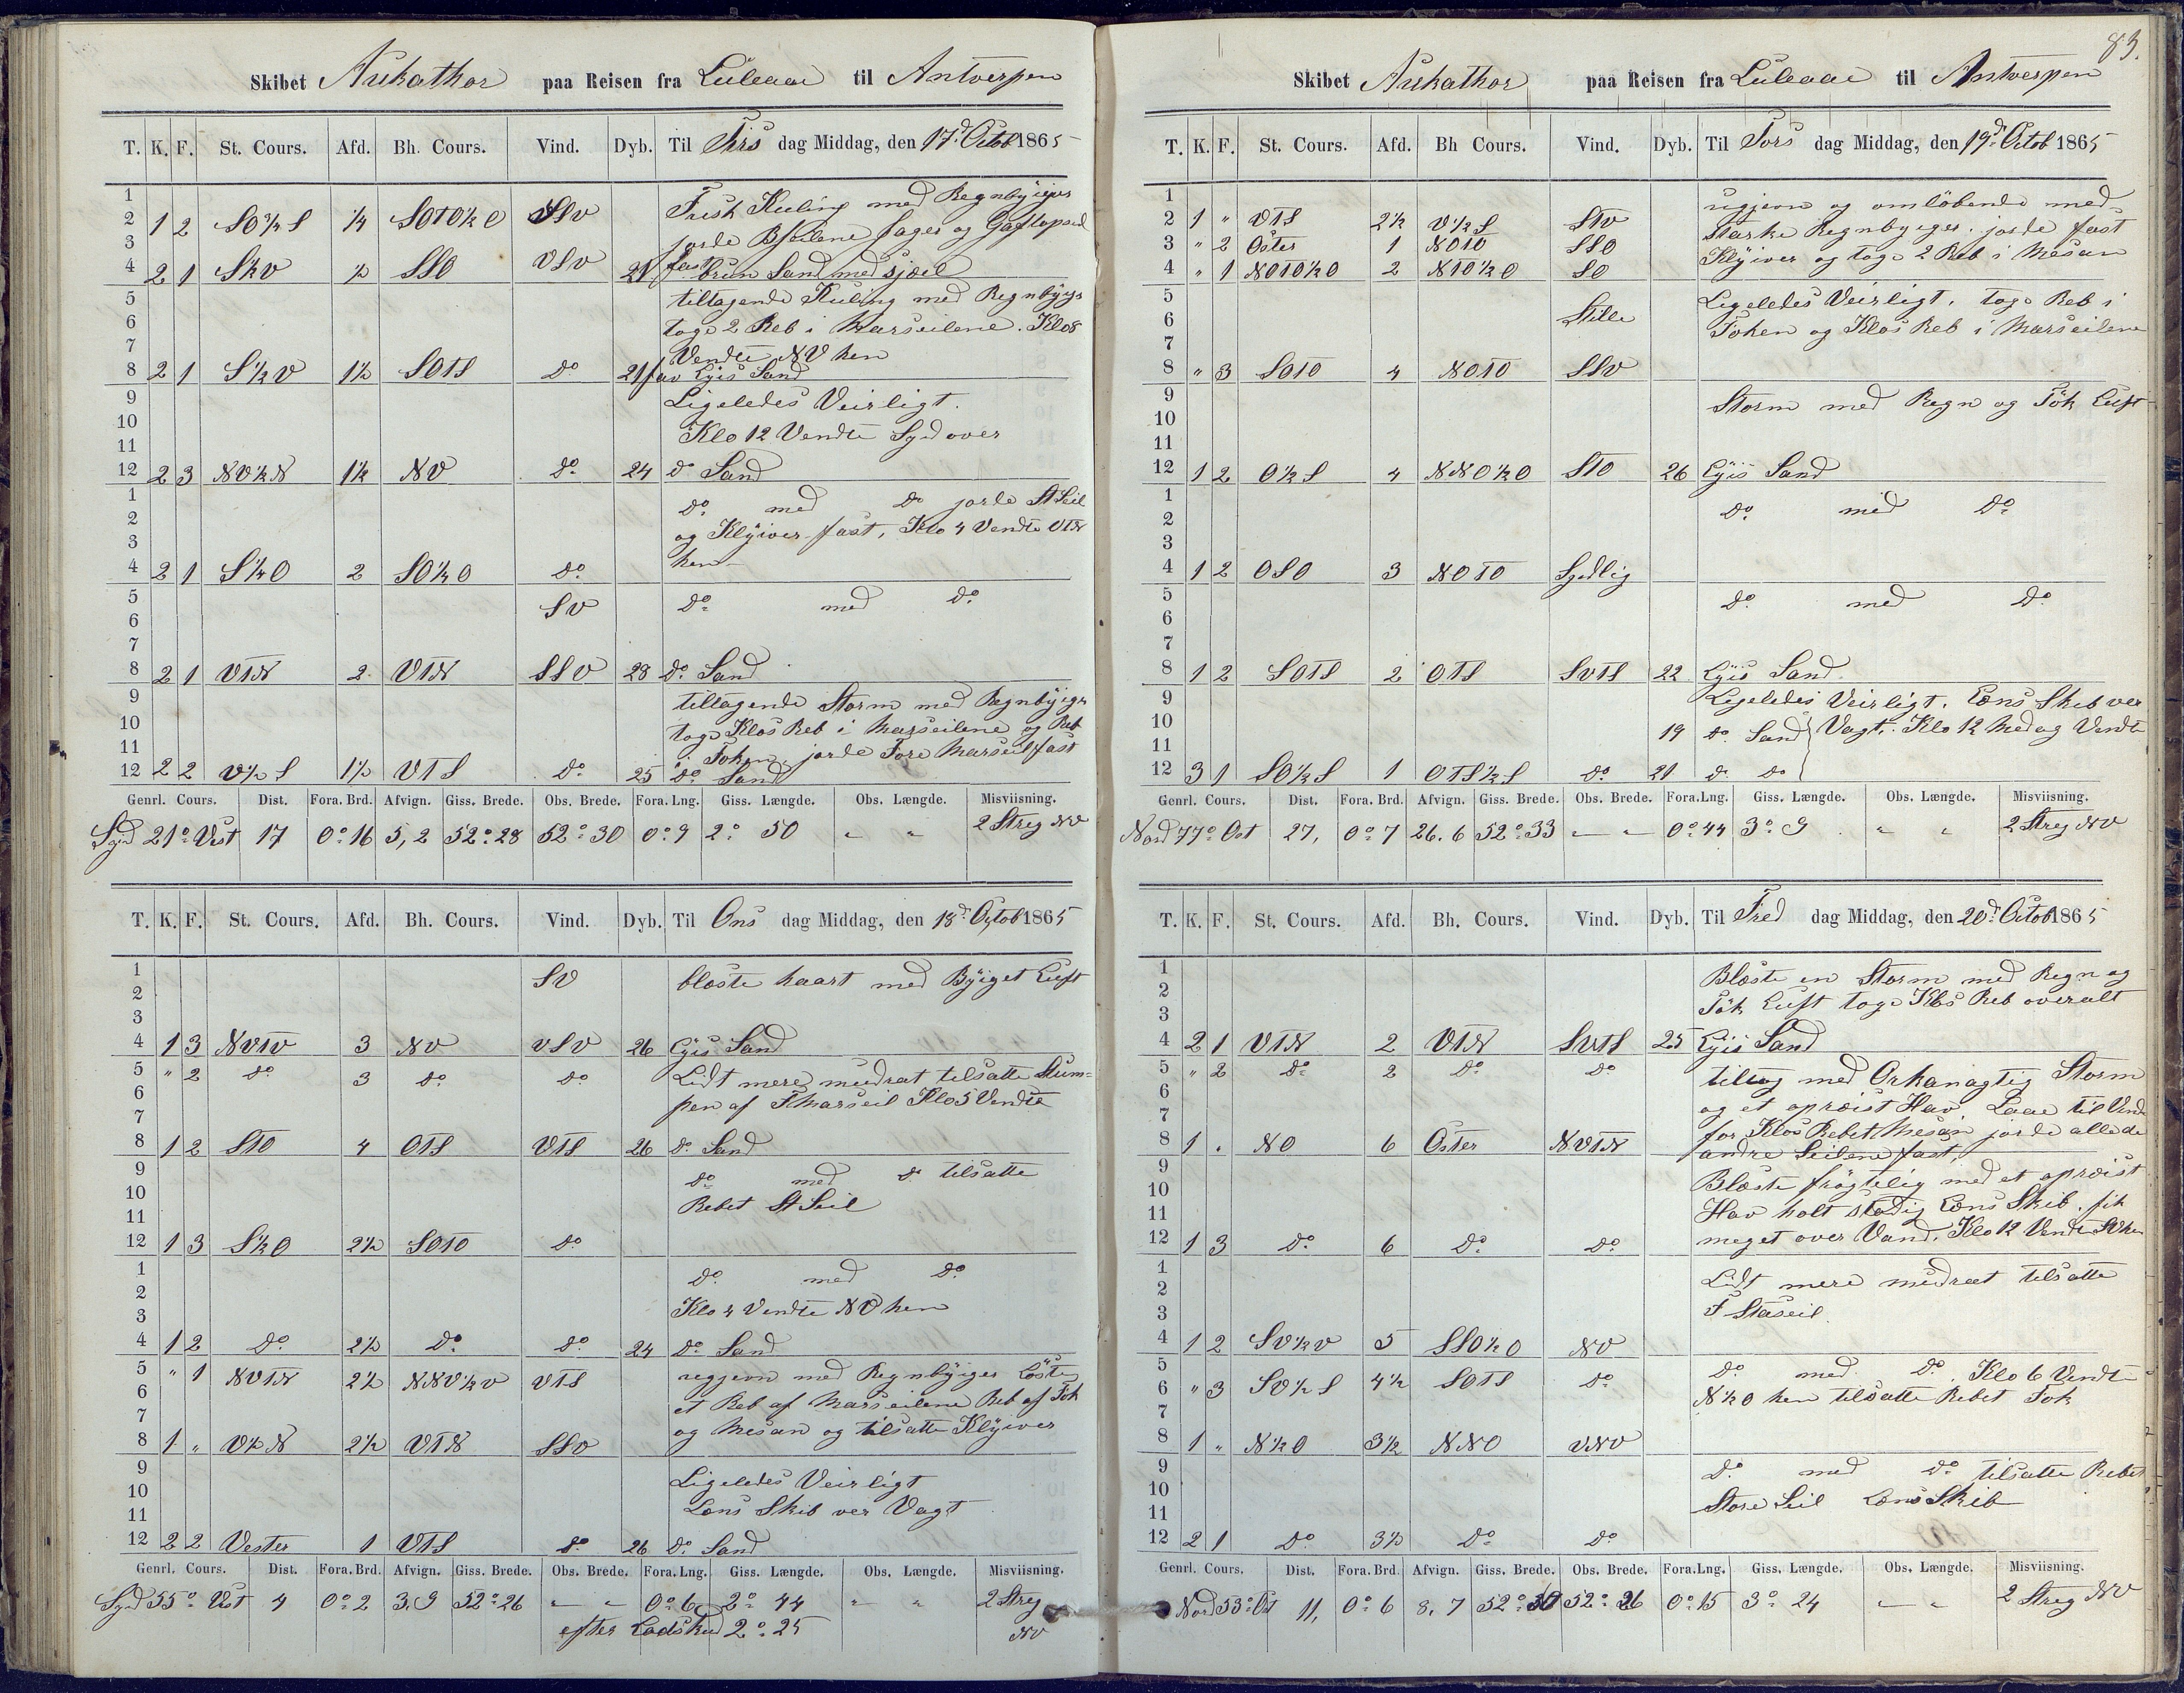 Skibet Nukathor paa Reisen fra Luleaae til Antverpen
T. K. F. St. Cours. Afd. Bh. Cours. Vind. Dyb. Til Tirs dag Middag, den 17d Octob 1865
1
2 1 2 SO¾S ¼ SOTO½O SSV Frisk Kuling med Regnbyiger
3 jorde Bseilene fages og Gaftopseil
4 2 1 S½V ½ SSO VSV 21 fast brun Sand med sjæll
5 tiltagende Kuling med Regnbyger
6 toge 2 Reb i Marseilene. Klo 8
7 Vendte NV hen
8 2 1 S½V 1½ SOTS Do 21 fav Lyis Sand
9 Ligeledes Veirligt.
10 Klo 12 Vendte Syd over
11
12 2 3 NV½N 1½ NV Do 24 Do Sand
1 Do med Do jorde St Seil
2 og Klyiver fast, Klo 4 Vendte VTN
3 hen
4 2 1 S½O 2 SO½O Do
5 SV Do med Do
6
7
8 2 1 VTN 2 VTN SSV 28 Do Sand
9 tiltagende Storm med Regnbyiger
10 toge Klos Reb i Marseilene og Reb
11 i Fokken jorde Fore Marseil fast
12 2 2 V½S 1½ VTS Do 25 Do Sand
Genrl. Cours. Dist. Fora. Brd. Afvign. Giss. Brede. Obs. Brede. Fora. Lng. Giss. Længde. Obs. Længde. Misviisning.
Syd 21° Vest 17 0° 16 5,2 52° 28 52° 30 0° 9 2° 50 " " 2 Streg NV
T. K. F. St. Cours. Afd. Bh. Cours. Vind. Dyb. Til Ons dag Middag, den 18d Octob 1865
1 SV blæste haart med Byiget Luft
2
3
4 1 3 NVTV 3 NV VSV 26 Lyis Sand
5 " 2 Do 3 Do Do Lidt mere mudrat tilsatte Stum-
6 pen af F Marseil Klo 5 Vendte
7
8 1 2 STO 4 OTS VTS 26 Do Sand
9 Do med Do tilsatte
10 Rebet St Seil
11
12 1 3 S½O 2½ SOTO Do
1 Do med Do
2 Klo 4 Vendte NV hen
3
4 1 2 Do 2½ Do Do 24 Do Sand
5 " 1 NVTN 2½ NNV½V VTS regjevn med Regnbyiger Löste
6 et Reb af Marseilene Reb af Fok
7 og Mesan og tilsatte Klyiver
8 1 " V½N 2½ VTN SSV
9 Ligeledes Veirligt
10 Læns Skib ver Vagt
11
12 2 2 Vester 1 VTS Do 26 Do Sand
Genrl. Cours. Dist. Fora. Brd. Afvign. Giss. Brede. Obs. Brede. Fora. Lng. Giss. Længde. Obs. Længde. Misviisning.
Syd 55° Vest 4 0° 2 3,9 52° 26 " " 0° 6 2° 44 " " 2 Streg
efter Lodskud 2° 25 NV
83.
Skibet Nukathor paa Reisen fra Luleaae til Antverpen
T. K. F. St. Cours. Afd. Bh Cours. Vind. Dyb. Til Tors dag Middag, den 19d Octob 1865
1 ugjevn og omlöbende med
2 1 " VTS 2½ V½S STV starke Regnbyeger. jorde fast
3 " 2 Öster 1 NOTO SSO Klyiver og toge 2 Reb i Mesan
4 " 1 NOTO½O 2 NTO½O SO
5 Ligeledes Veirligt. toge Reb i
6 Stille Foken og Klos Reb i Marseilene
7
8 " 3 SOTO 4 NOTO SSV
9 Storm med Regn og Tök Luft
10
11
12 1 2 O½S 4 NNO½O STO 26 Lyis Sand
1 Do med Do
2
3
4 1 2 OSO 3 NOTO Sydlig
5 Do med Do
6
7
8 1 2 SOTS 2 OTS SVTS 22 Lyis Sand
9 Ligeledes Veirligt. Læns Skib ver
10 19 Do Sand Vagt. Klo 12 Medag Vendte
11
12 3 1 SO½S 1 OTS½S Do 21 Do Do
Genrl. Cours. Dist. Fora. Brd. Afvign. Giss. Brede. Obs. Brede. Fora. Lng. Giss. Længde. Obs. Længde. Misviisning.
Nord 77° Ost 27, 0° 7 26.6 52° 33 " " 0° 44 3° 9 " " 2 Streg NV
T. K. F. St. Cours. Afd. Bh. Cours. Vind. Dyb. Til Fred dag Middag, den 20d Octob 1865
1 Blæste en Storm med Regn og
2 Tök Luft toge Klos Reb overalt
3
4 2 1 VTN 2 VTN SVTS 25 Lyis Sand
5 " 2 Do 2 Do Do tiltog med Orkanagtig Storm
6 og et opræist Hav. Laae til Vinds
7 for Klos Rebet Mesan jorde alle de
8 1 . NO 6 Öster NVTN andre Seilene fast,
9 Blæste frögtelig med et opræist
10 Hav holt stadig Læns Skib. fik
11 meget over Vand. Klo 12 Vendte SV hen
12 1 3 Do 6 Do Do
1 Lidt mere mudrat tilsatte
2 F Staseil
3
4 1 2 SV½V 5 SSO½O NV
5 Do med Do. Klo 6 Vendte
6 " 3 SV½S 4½ SOTS Do N½O hen tilsatte Rebet Fok
7
8 1 " N½O 3½ NNO VNV
9 Do med Do tilsatte Rebet
10 Store Seil Læns Skib
11
12 2 1 Do 3½ Do Do
Genrl. Cours. Dist. Fora. Brd. Afvign. Giss. Brede. Obs. Brede. Fora. Lng. Giss. Længde. Obs. Længde. Misviisning.
Nord 53° Ost 11, 0° 6 8,7 52° 52° 26 0° 15 3° 24 " " 2 Streg NV